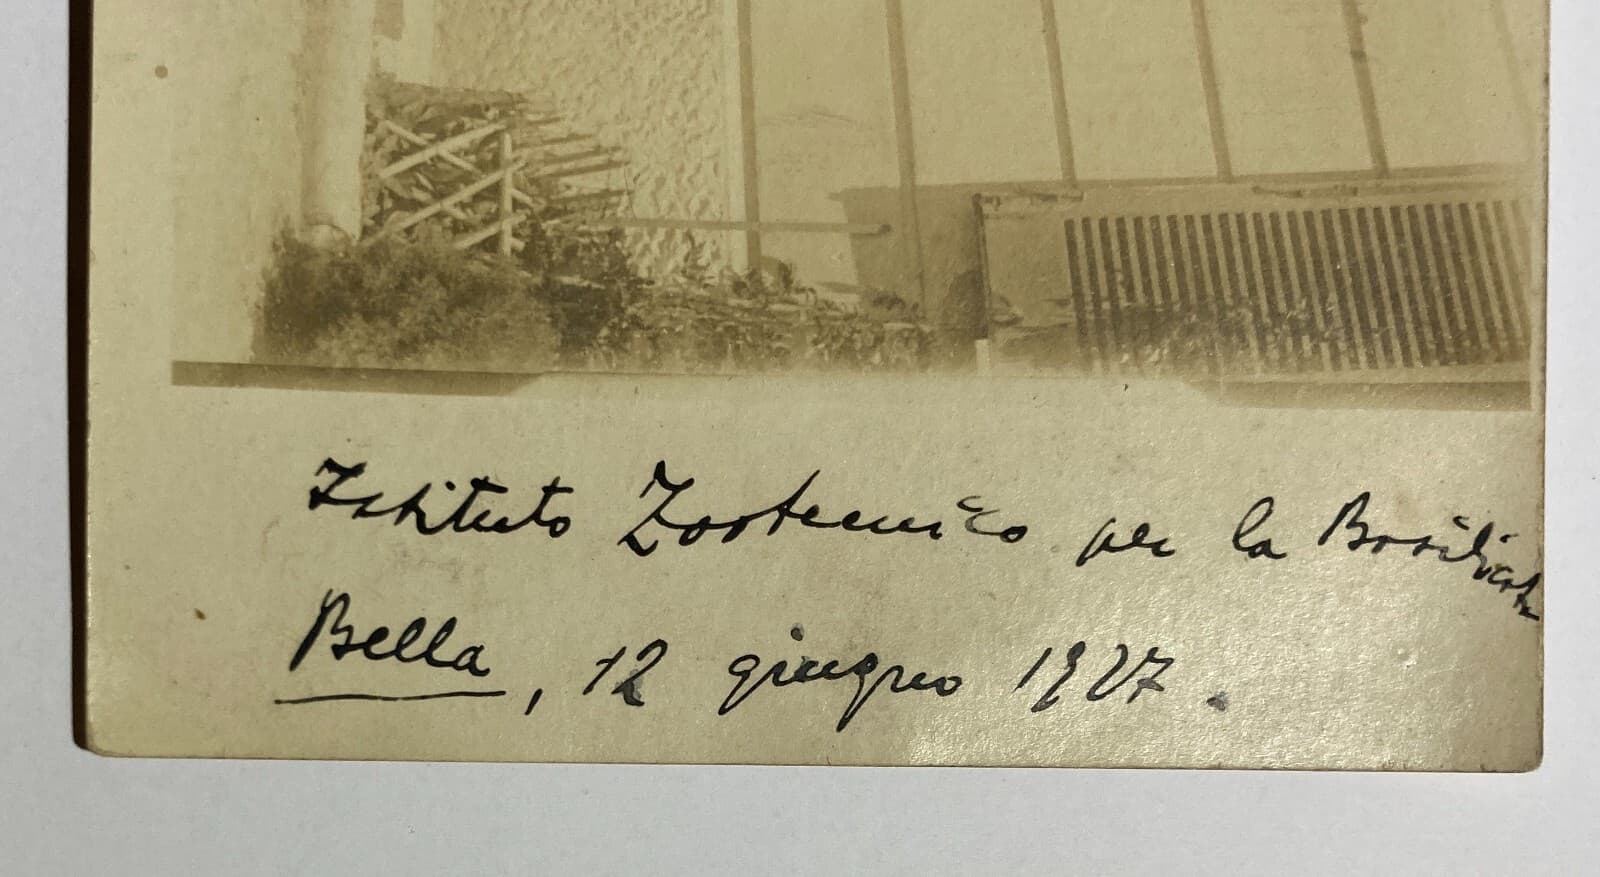 Istituto Zootecnico per la Basilicata
Bella, 12 giugno 1927.